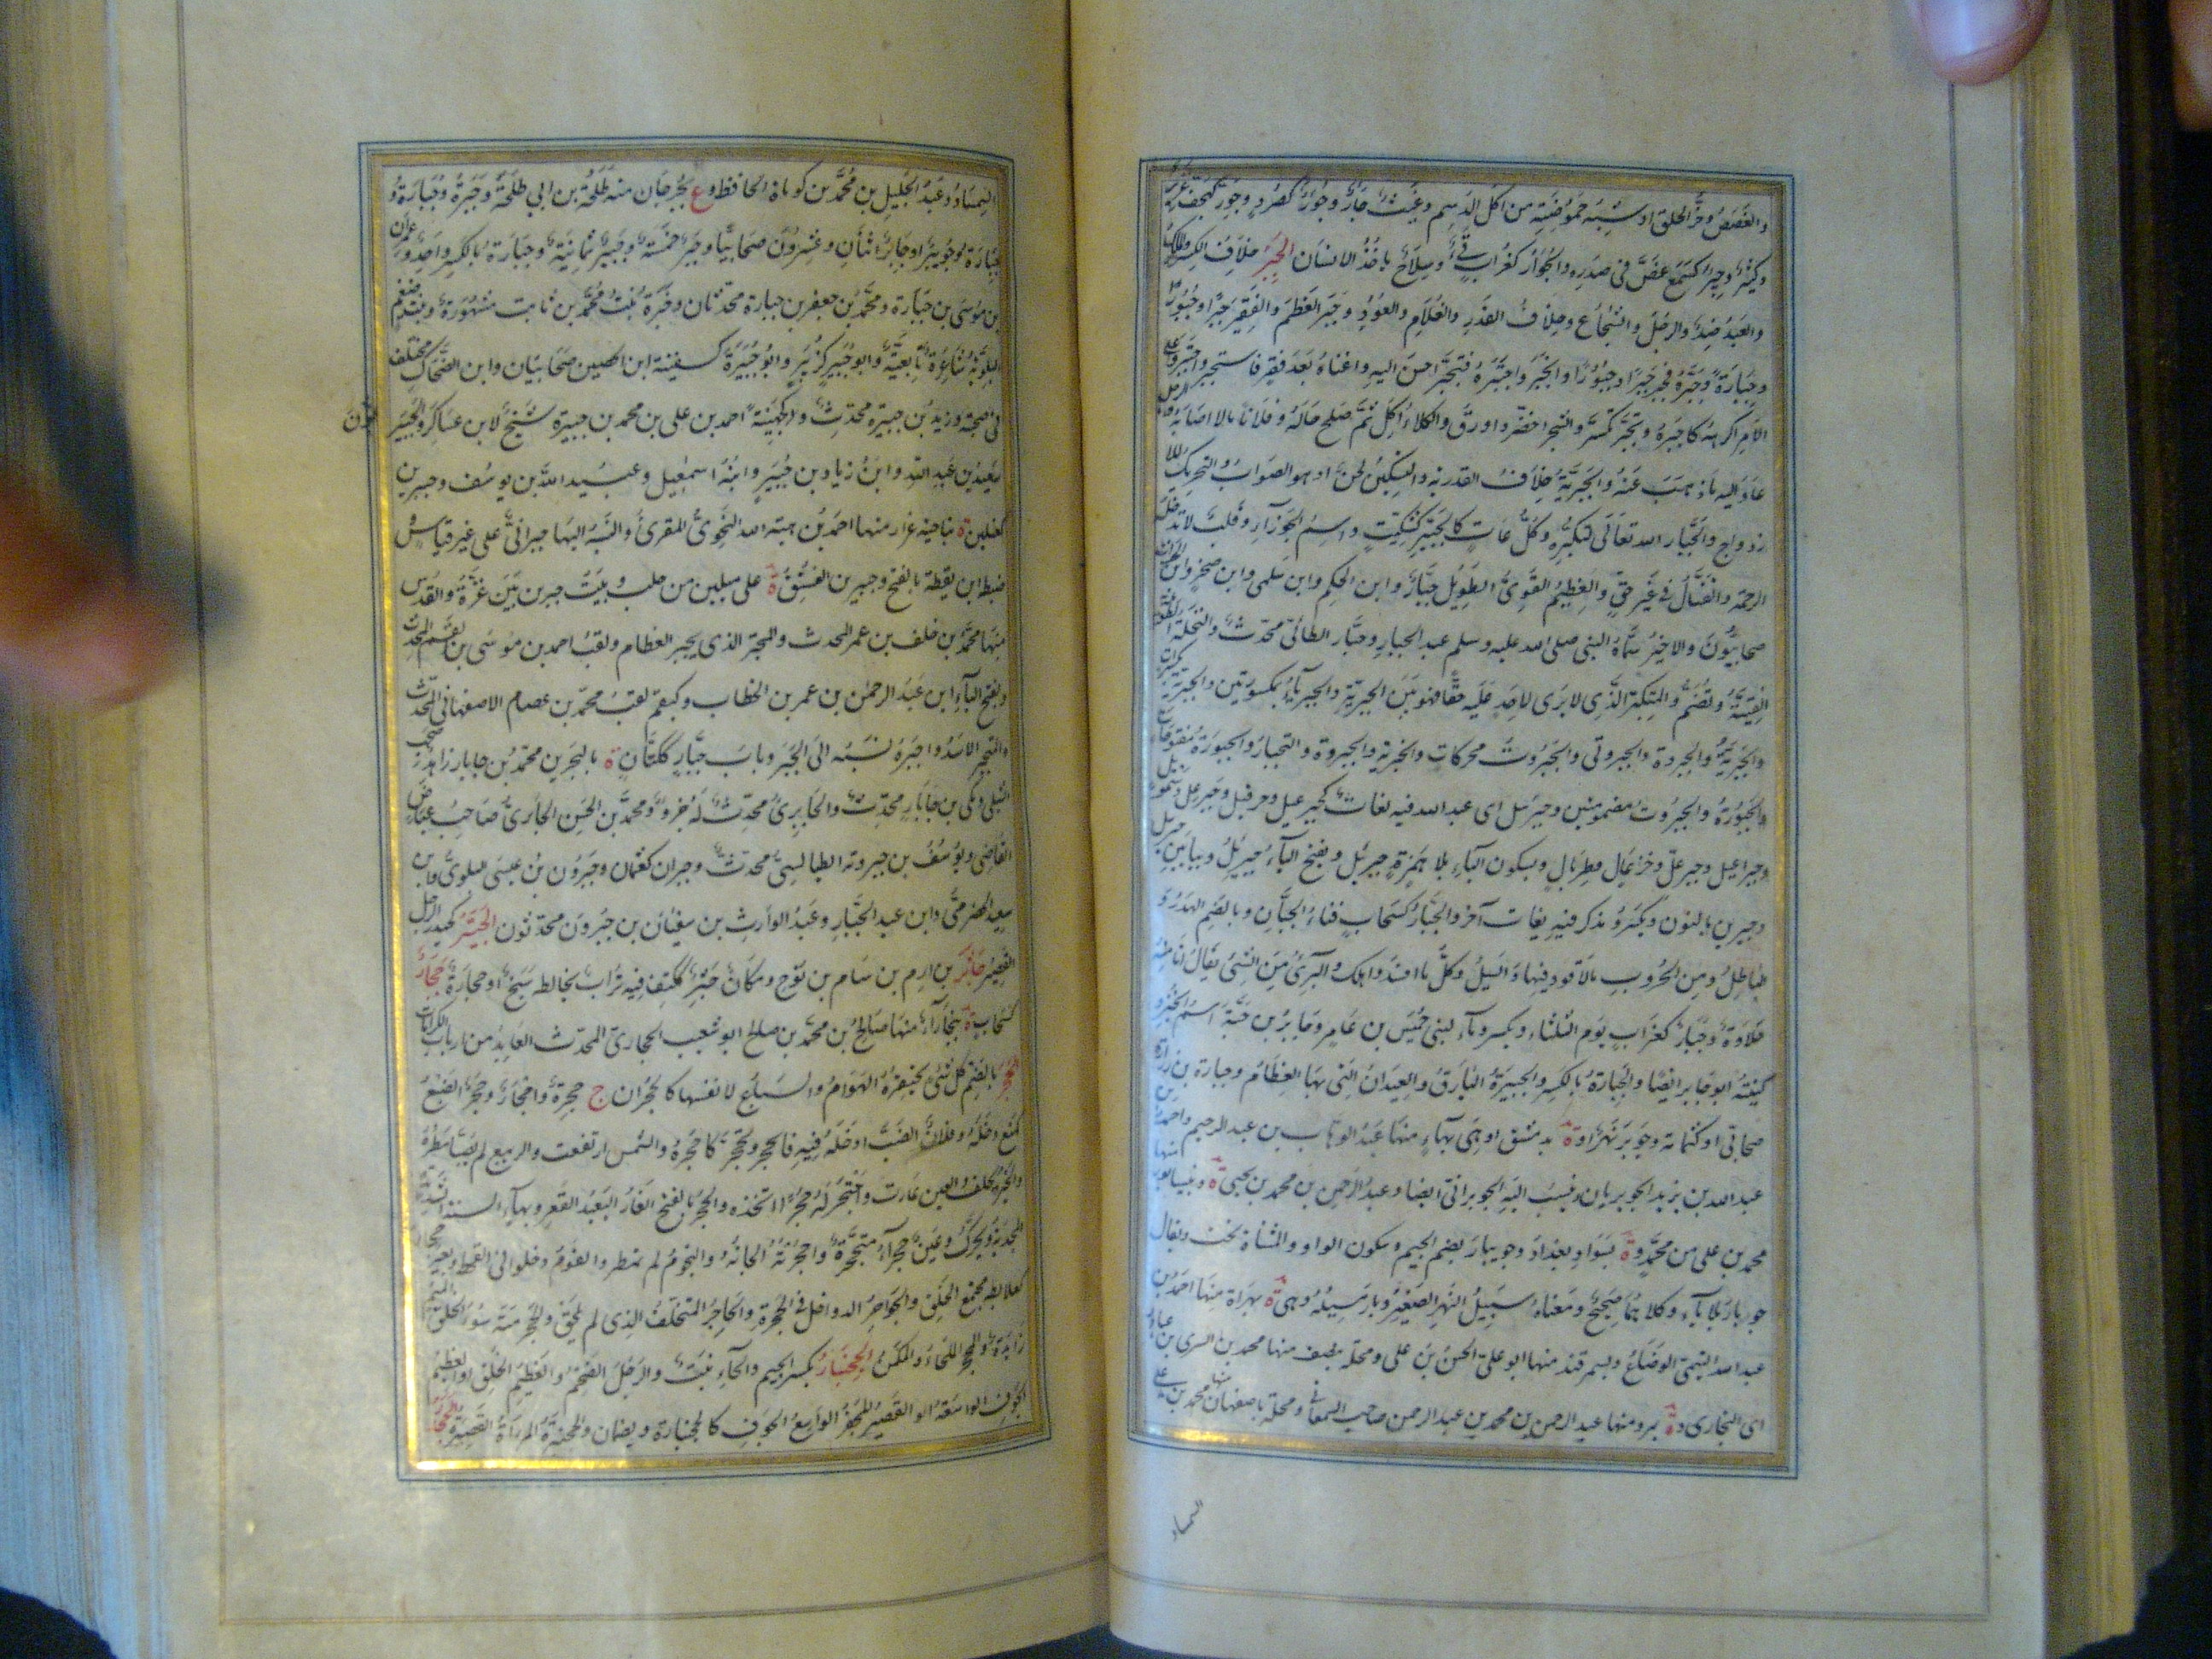 والغصص وحر الحلق او شبه حموضة من اكل الدسم وغيث جأر وجؤر كصرد وجور كهجف غزير
وكثر وجئر كسمع غص فى صدره والجؤار كغراب قىء وسلاح ياخذ الانسان الجبر خلاف الكسر والملك
والعبد ضد والرجل والشجاع وخلاف القدر والغلام والعود وجبر العظم والفقير جبرا وجبورا
وجبارة وجبره فجبر جبرا وجبورا وانجبر واجتبره فتجبر احسن اليه او اغناه بعد فقر فاستجبر واجتبر وعلى
الامر اكرهه كاجبره وتجبر تكبر والشجر اخضر واورق والكلاء اكل ثم صلح حاله وفلانا مالا اصابه والرجل
عاد اليه ما ذهب عنه والجبرية خلاف القدرية والتسكين لحن او هو الصواب والتحريك للا
زدواج والجبار الله تعالى لتكبره وكل عات كالجبير كسكيت واسم الجوزاء وقلب لا تدخله
الرحمة والقتال فى غير حق والعظيم القوى الطويل جبار وابن الحكم وابن سلمى وابن صخر وابن الحارث
صحابيون والاخير سماه النبى صلى الله عليه وسلم عبد الجبار وجبار الطائى محدث والنخلة الطويلة
الفتية وتضم والمتكبر الذى لا يرى لاحد عليه حقا فهو بين الجبرية والجبرياء مكسورتين والجبرية بكسرات
والجبرية والجبروة والجبروتى والجبروت محركات والجبرية والجبروة والتجبار والجبورة مفتوحات
والجبورة والجبروت مضمومتين وجبرئيل اى عبد الله فيه لغات كجبرعيل وحزقيل وجبرعل وسمويل
وجبراعيل وجبرعل وخزعال وطربال وبسكون الياء بلا همزة جبريل وبفتح الياء جبريل وبياءين جبرييل
وجبرين بالنون ويكسر ومذكر فيه لغات آخر والجبار كسحاب فناء الجبان وبالضم الهدر و
الباطل ومن الحروب ما لا قود فيها والسيل وكل ما افسد واهلك والبرىء من الشىء يقال انا منه
خلاوة وجبار كغراب يوم الثلثاء ويكسر وماء لبنى خميس بن عامر وجابر بن حبة اسم الخبز و
كنيته ابو جابر ايضا والجبارة بالكسر والجبيرة اليارق والعيدان التى بها العظام وجبارة بن زرارة
صحابى او كثمامة وجوبر نهر او ة بدمشق او هى بهاء منها عبد الوهاب بن عبد الرحيم واحمد بن
عبد الله بن يزيد الجوبريان وينسب اليه الجوبرانى ايضا وعبد الرحمن بن محمد بن يحيى و ة بنيسابور منها
محمد بن على بن محمد و ة بسواد بغداد وجويبار بضم الجيم وسكون الواو والمثناة تحت ويقال
جوبار بلا ياء وكلاهما صحيح ومعناه سبيل النهر الصغير وبار مسيله وهى ة بهراة منها احمد بن
عبد الله التيمى الوضاع وبسمرقند منها ابو على الحسن بن على ومحلة بنسف منها محمد بن السرى بن عباد
اى البخارى و ة بمرو منها عبد الرحمن بن محمد بن عبد الرحمن صاحب السمعانى ومحلة باصفهان منها محمد بن على
السمسار
السمسار وعبد الجليل بن محمد بن كوتاه الحافظ و ع بجرجان منه طلحة بن ابى طلحة وجبرة وجبارة و
جبارة وجويبر وجابر اثنان وعشرون صحابيا وجبر خمسة وجبير ثمانية وجبارة بالكسر واحد وعمران
بن موسى بن جبارة ومحمد بن جعفر بن جبارة محدثان وجبرة بنت محمد بن ثابت مشهورة وبنت ضيغم
البلوية شاعرة تابعية وابو جبير كزبير وابو جبيرة كسفينة ابن الحصين صحابيان وابن الضحاك مختلف
فى صحبته وزيد بن جبيرة محدث وكجهينة احمد بن على بن محمد بن جبيرة شيخ لابن عساكر والجبيريون
سعيد بن عبد الله وابن زياد بن جبير وابنه اسمعيل وعبيد الله بن يوسف وجبرين
كغسلين ة بناحية عزاز منها احمد بن هبة الله النحوى المقرئ والنسبة اليها جبرانى على غير قياس و
ضبطه ابن نقطة بالفتح وجبرين الفستق ة على ميلين من حلب وبيت جبرين بين غزة والقدس
منها محمد بن خلف بن عمر المحدث والمجبر الذى يجبر العظام ولقب احمد بن موسى بن القسم المحدث
وبفتح الباء ابن عبد الرحمن بن عمر بن الخطاب وكبقم لقب محمد بن عصام الاصفهانى المحدث
والمتجبر الاسد واجبره نسبه الى الجبر وباب جبار ككتان ة بالبحرين محمد بن جابار زاهد صحب
الشبلى ومكى بن جابار محدث والجابرى محدث له جزو ومحمد بن الحسن الجابرى صاحب عياض
القاضى ويوسف بن جبروية الطيالسى محدث وجبران كعثمان وجبرون بن عيسى البلوى وابن
سعيد الحضرمى وابن عبد الجبار وعبد الوارث بن سفيان بن جبرون محدثون الجيتر كحيدر الرجل
القصير جاثر بن ارم بن سام بن نوح ومكان جثر ككتف فيه تراب يخالطه سبخ او حجارة ججار
كسحاب ة ببخارا منها صالح بن محمد بن صالح ابو شعيب الججارى المحدث العابد من ارباب الكرامات
الجحر بالضم كل شىء يحتفره الهوام والسباع لانفسها كالجحران ج جحرة واجحار وجحر الضب
كمنع دخله وفلان الضب ادخله فيه فانجحر وتجحر كاجحره والشمس ارتفعت والربيع لم يصبنا مطره
والخير تخلف والعين غارت واجتحر له جحرا اتخذه والجحر بالفتح الغار البعيد القعر وبهاء السنة الشديدة
المجدبة ويحرك وعين جحراء متجحرة واجحرته الجأته والنجوم لم تمطر والقوم دخلوا فى القحط وبعير جحارية
كعلابطة مجتمع الخلق والجواحر الدواخل فى الجحرة والجاحر المتخلف الذى لم يلحق والجحرمة سوء الخلق والميم
زائدة والمجحر الملجأ والمكمن الجحنبار بكسر الجيم والحاء نبت والرجل الضخم والعظيم الخلق او العظيم
الجوف الواسعه او القصير المجفر الواسع الجوف كالجحنبارة ويضمان والجحنبرة المرأة القصيرة الجحدر